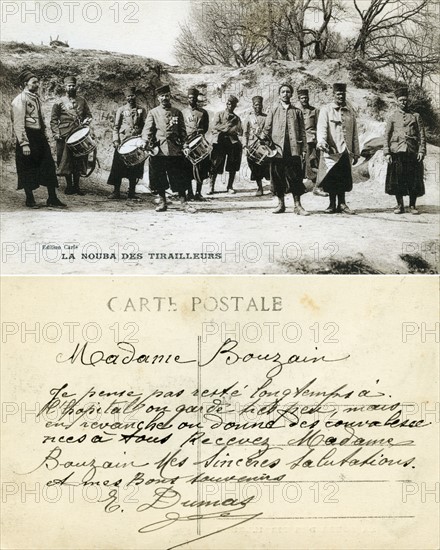 Edition Carle
LA NOUBA DES TIRAILLEURS
CARTE POSTALE
Madame Bouzain
Je pense pas resté longtemps à
l'hôpital on garde très peu, mais
en revanche on donne des convalesce
nces à tous Recevez Madame
Bouzain Mes Sincères Salutations.
et mes Bons Souvenirs
E. Dumas